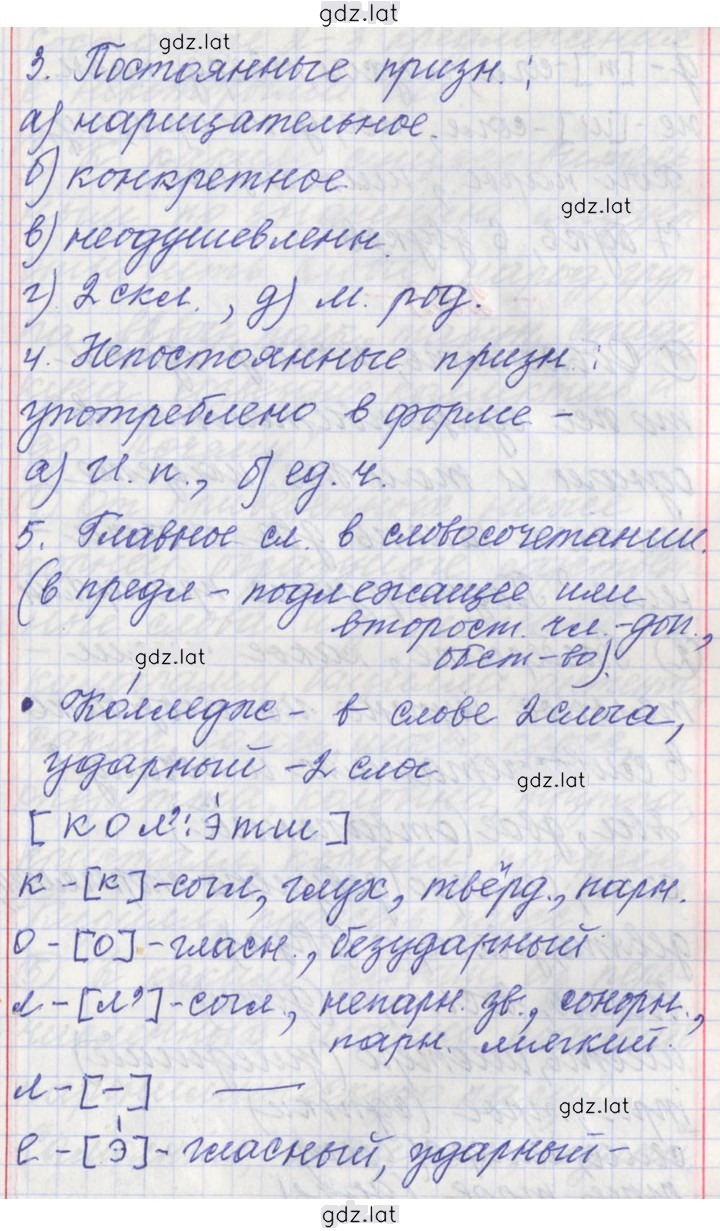 gdz.lat
gdz.lat
3. Постоянные призн.:
а) нарицательное.
б) конкретное.
gdz.lat
в) неодушевленн.
г) 2 скл., д) м. род.
4. Непостоянные призн.:
употреблено в форме –
а) И. п., б) ед. ч.
5. Главное сл. в словосочетании.
(в предл – подлежащее или
второст. чл. – доп.,
обст-во).
gdz.lat
• Ко́лледж – в слове 2 слога,
ударный – 2 слог
gdz.lat
[кол’:э́тш]
к – [к] – согл, глух, твёрд., парн.
о – [о] – гласн., безударный
л – [л’] – согл., непарн. зв., сонорн.,
парн. мягкий.
л – [–] ——
gdz.lat
е – [э́] – гласный, ударный –
gdz.lat